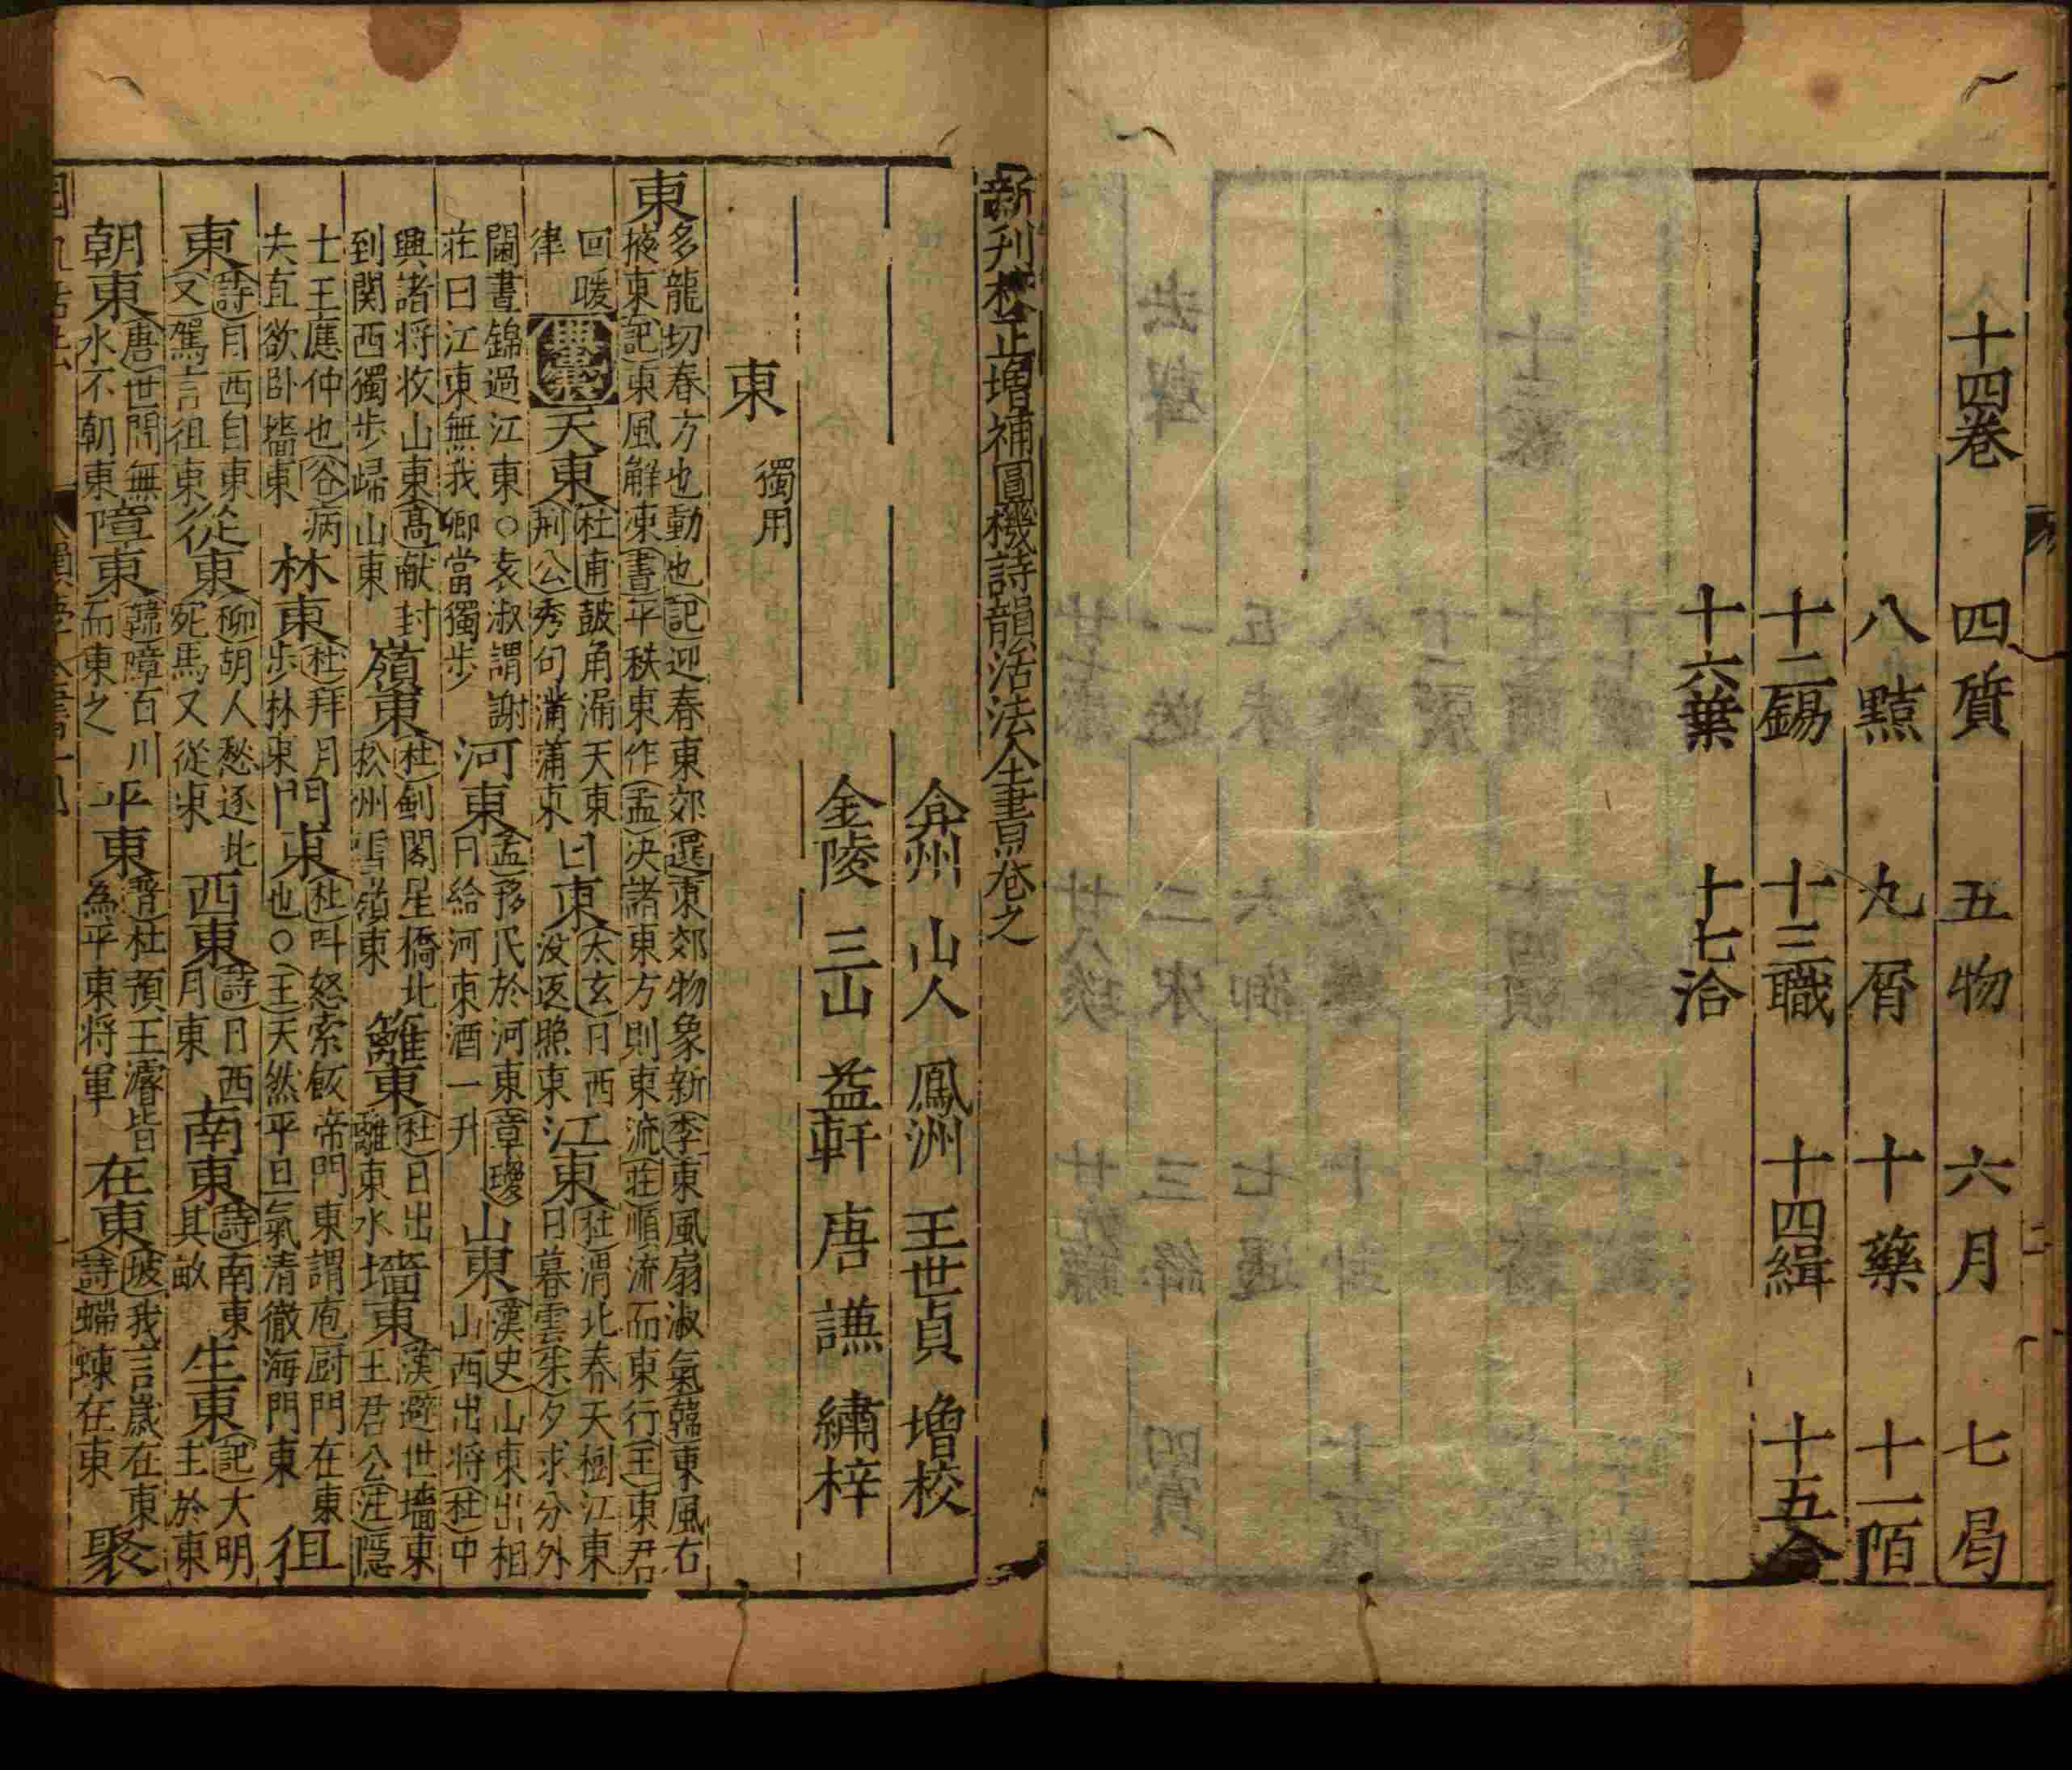 十四卷 四質 五物 六月 七曷
八黠 九屑 十藥 十一陌
十二錫 十三職 十四緝 十五合
十六葉 十七洽
新刊校正增補圓機詩韻活法全書卷之
弇州 山人 鳳洲 王世貞 增校
金陵 三山 益軒 唐謙 繡梓
東 獨用
東 多龍切春方也動也記迎春東郊選東郊物象新李東風扇淑氣韓東風右
掖東記東風解凍書平秩東作孟决諸東方則東流莊順流而東行王東君
回暖
律
天東 杜甫鼓角漏天東
荆公秀句滿蒲東
日東 太玄日西
沒返照東
江東 杜渭北春天樹江東
日暮雲朱夕求分外
闌晝錦過江東○袁淑謂謝
莊曰江東無我卿當獨步
河東 孟移民於河東章瓊
日給河東酒一升
山東 漢史山東出相
山西出将杜中
興諸将收山東高献封
到関西獨步歸山東
嶺東 杜劍閣星橋北
松州雪嶺東
籬東 杜日出
離東水
墻東 漢避世墻東
王君公注隱
士王應仲也谷病
夫直欲卧墻東
林東 杜拜月
步林東
門東 杜叫怒索飯啼門東謂庖厨門在東
也○王天然平旦氣清徹海門東
徂
東 詩月西自東
又駕言徂東
從東 柳胡人愁逐北
宛馬又從東
西東 詩日西
月東
南東 詩南東
其畝
生東 記大明
生於東
朝東 唐世間無
水不朝東
障東 韓障百川
而東之
平東 晉杜預王濬皆
為平東将軍
在東 坡我言歲在東
詩蝃蝀在東
聚